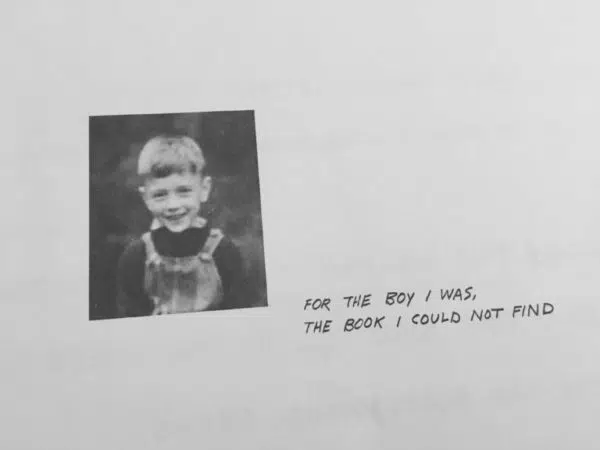 FOR THE BOY I WAS,
THE BOOK I COULD NOT FIND